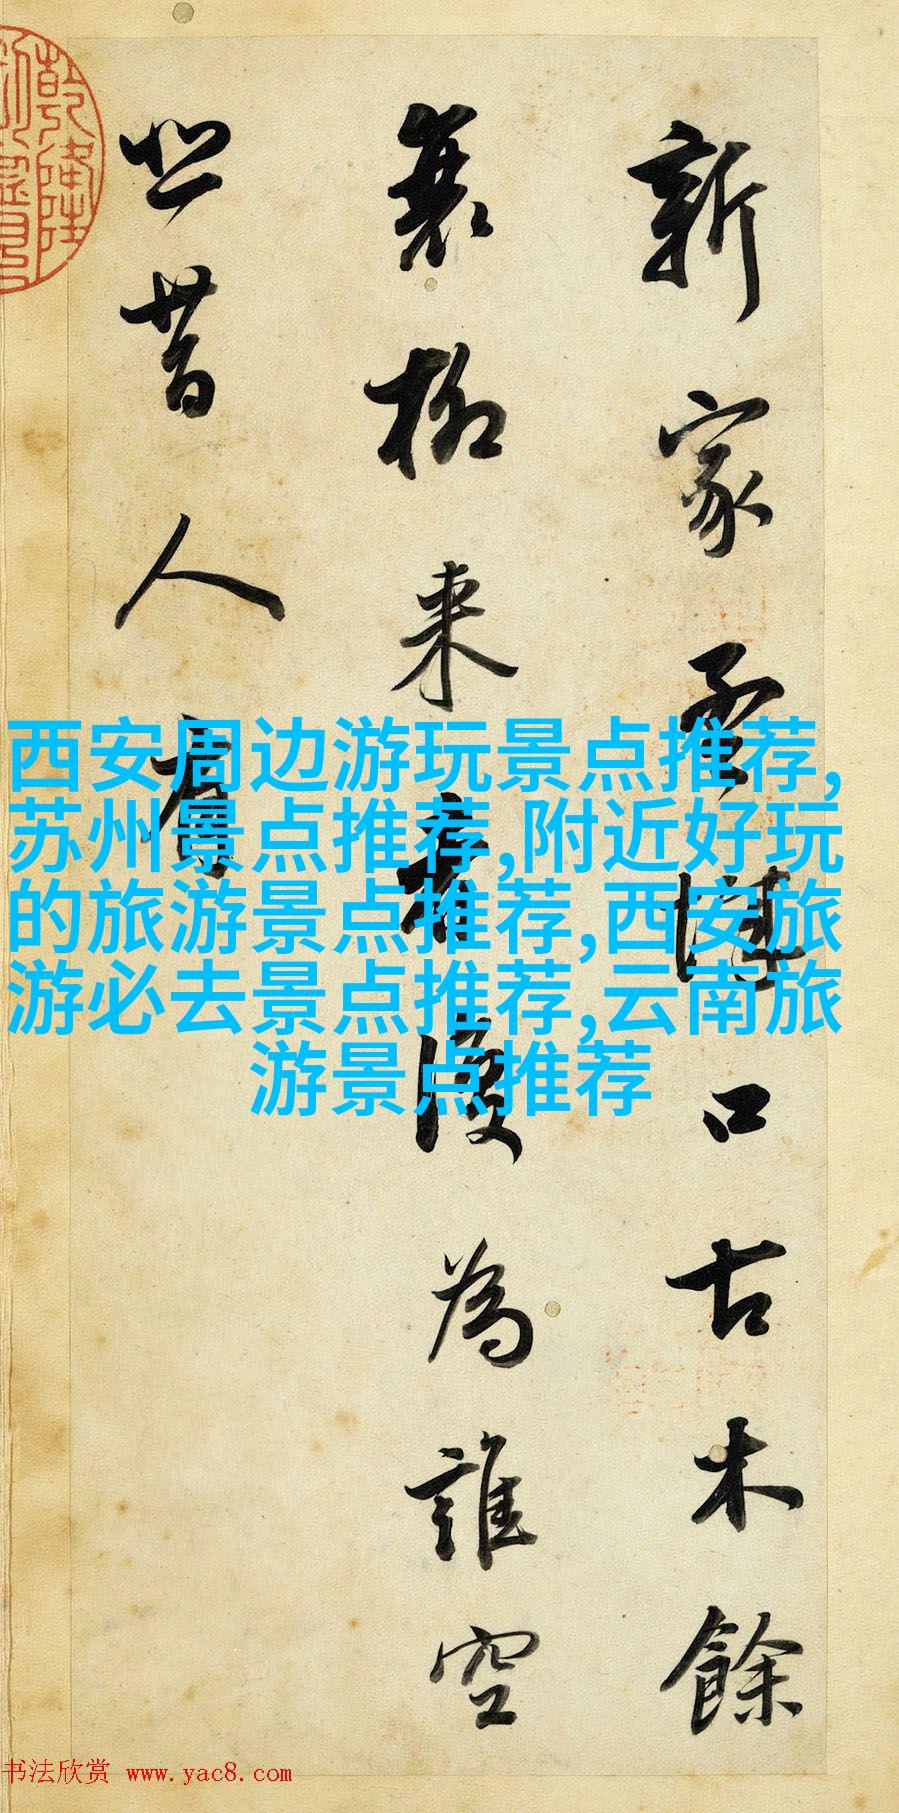 新家孟城口古木餘
衰柳来者復為誰空
悲昔人有
乾隆
西安周边游玩景点推荐,
苏州景点推荐,附近好玩
的旅游景点推荐,西安旅
游必去景点推荐,云南旅
游景点推荐
书法欣赏 www.yac8.com